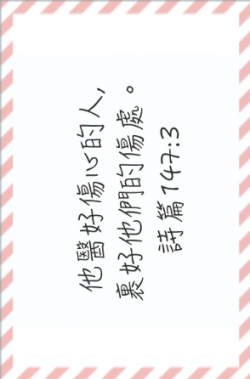 他醫好傷心的人,
裹好他們的傷處。
詩篇 147:3